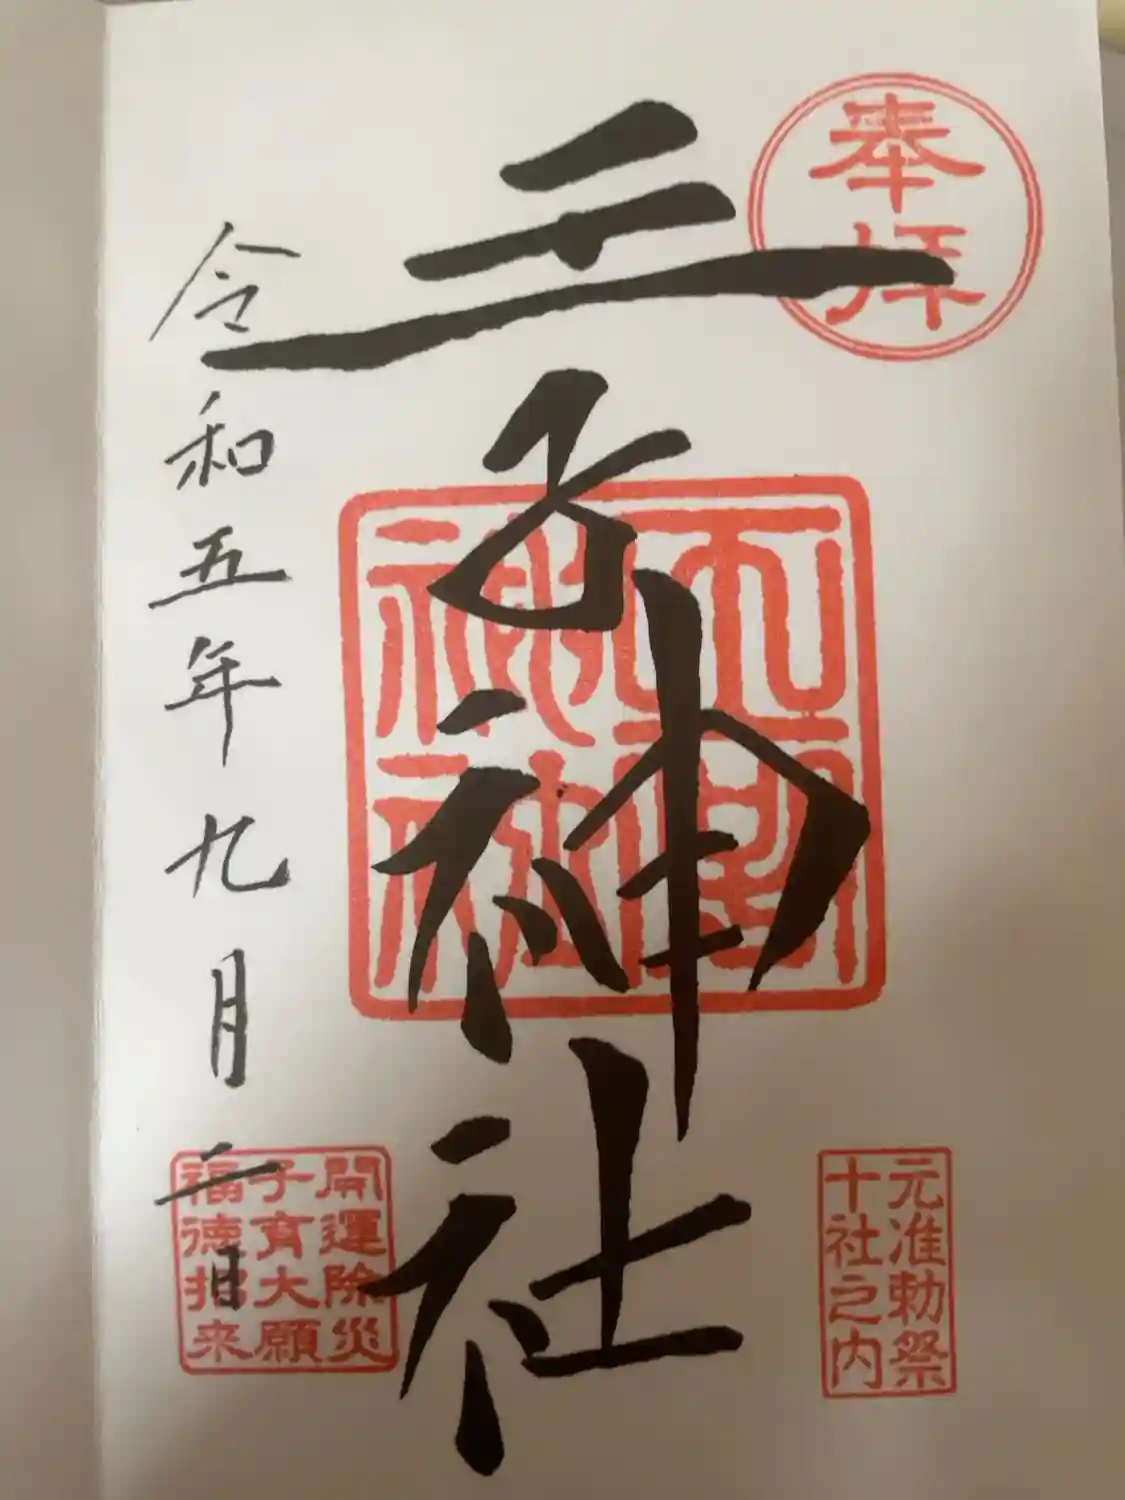 奉拝
元准勅祭
十社之内
王子神社
開運除災
子育大願
福徳招来
令和五年九月二日